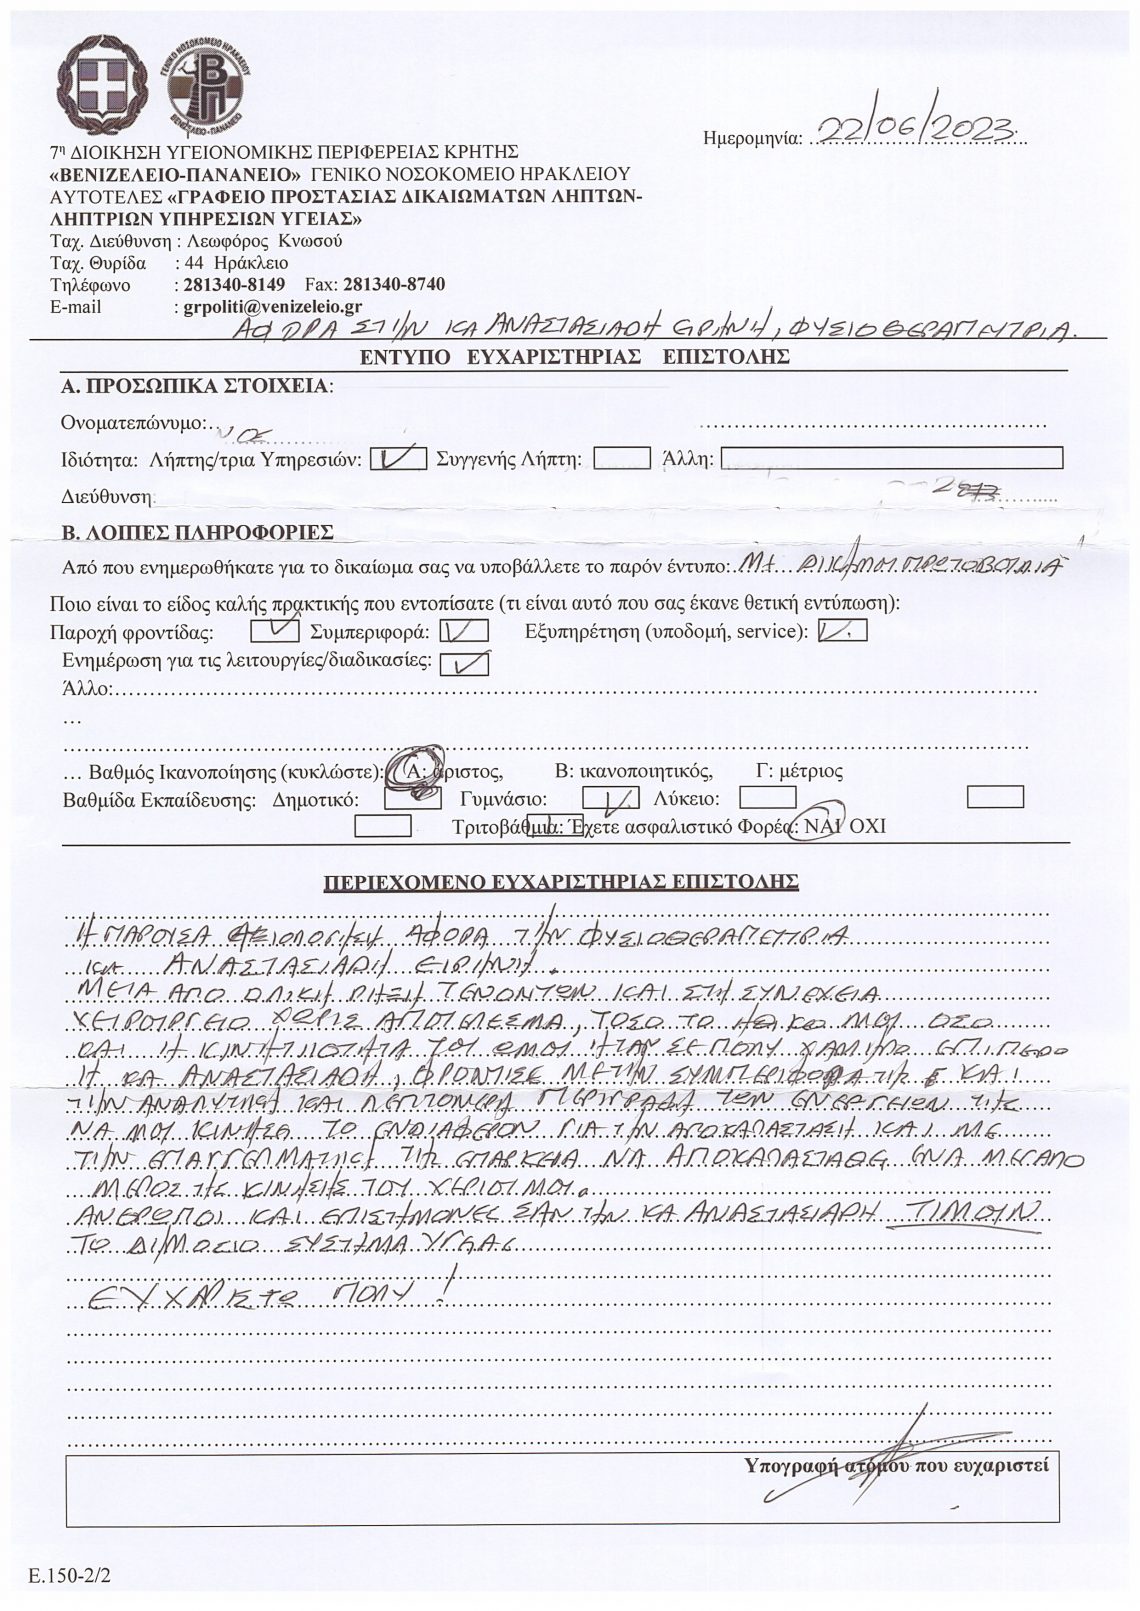 ΓΕΝΙΚΟ ΝΟΣΟΚΟΜΕΙΟ ΗΡΑΚΛΕΙΟΥ
ΒΠ
ΒΕΝΙΖΕΛΕΙΟ-ΠΑΝΑΝΕΙΟ
Ημερομηνία: 22/06/2023
7η ΔΙΟΙΚΗΣΗ ΥΓΕΙΟΝΟΜΙΚΗΣ ΠΕΡΙΦΕΡΕΙΑΣ ΚΡΗΤΗΣ
«ΒΕΝΙΖΕΛΕΙΟ-ΠΑΝΑΝΕΙΟ» ΓΕΝΙΚΟ ΝΟΣΟΚΟΜΕΙΟ ΗΡΑΚΛΕΙΟΥ
ΑΥΤΟΤΕΛΕΣ «ΓΡΑΦΕΙΟ ΠΡΟΣΤΑΣΙΑΣ ΔΙΚΑΙΩΜΑΤΩΝ ΛΗΠΤΩΝ-
ΛΗΠΤΡΙΩΝ ΥΠΗΡΕΣΙΩΝ ΥΓΕΙΑΣ»
Ταχ. Διεύθυνση : Λεωφόρος Κνωσού
Ταχ. Θυρίδα : 44 Ηράκλειο
Τηλέφωνο : 281340-8149 Fax: 281340-8740
E-mail : grpoliti@venizeleio.gr
ΑΦΟΡΑ ΣΤΗΝ ΚΑ ΑΝΑΣΤΑΣΙΑΔΗ ΕΙΡΗΝΗ, ΦΥΣΙΟΘΕΡΑΠΕΥΤΡΙΑ.
ΕΝΤΥΠΟ ΕΥΧΑΡΙΣΤΗΡΙΑΣ ΕΠΙΣΤΟΛΗΣ
Α. ΠΡΟΣΩΠΙΚΑ ΣΤΟΙΧΕΙΑ:
Ονοματεπώνυμο:
Ιδιότητα: Λήπτης/τρια Υπηρεσιών: Συγγενής Λήπτη: Άλλη:
Διεύθυνση:
Β. ΛΟΙΠΕΣ ΠΛΗΡΟΦΟΡΙΕΣ
Από που ενημερωθήκατε για το δικαίωμα σας να υποβάλλετε το παρόν έντυπο: ΜΕ ΔΙΚΗ ΜΟΥ ΠΡΩΤΟΒΟΥΛΙΑ
Ποιο είναι το είδος καλής πρακτικής που εντοπίσατε (τι είναι αυτό που σας έκανε θετική εντύπωση):
Παροχή φροντίδας: Συμπεριφορά: Εξυπηρέτηση (υποδομή, service):
Ενημέρωση για τις λειτουργίες/διαδικασίες:
Άλλο:
…
… Βαθμός Ικανοποίησης (κυκλώστε): Α: άριστος, Β: ικανοποιητικός, Γ: μέτριος
Βαθμίδα Εκπαίδευσης: Δημοτικό: Γυμνάσιο: Λύκειο:
Τριτοβάθμια: Έχετε ασφαλιστικό Φορέα: ΝΑΙ ΟΧΙ
ΠΕΡΙΕΧΟΜΕΝΟ ΕΥΧΑΡΙΣΤΗΡΙΑΣ ΕΠΙΣΤΟΛΗΣ
Η ΠΑΡΟΥΣΑ ΑΞΙΟΛΟΓΗΣΗ ΑΦΟΡΑ ΤΗΝ ΦΥΣΙΟΘΕΡΑΠΕΥΤΡΙΑ
ΚΑ ΑΝΑΣΤΑΣΙΑΔΗ ΕΙΡΗΝΗ.
ΜΕΤΑ ΑΠΟ ΟΛΙΚΗ ΡΗΞΗ ΤΕΝΟΝΤΩΝ ΚΑΙ ΣΤΗ ΣΥΝΕΧΕΙΑ
ΧΕΙΡΟΥΡΓΕΙΟ ΧΩΡΙΣ ΑΠΟΤΕΛΕΣΜΑ, ΤΟΣΟ ΤΟ ΗΘΙΚΟ ΜΟΥ ΟΣΟ
ΚΑΙ Η ΚΙΝΗΤΙΚΟΤΗΤΑ ΤΟΥ ΩΜΟΥ ΗΤΑΝ ΣΕ ΠΟΛΥ ΧΑΜΗΛΟ ΕΠΙΠΕΔΟ
Η ΚΑ ΑΝΑΣΤΑΣΙΑΔΗ, ΦΡΟΝΤΙΣΕ ΜΕ ΤΗΝ ΣΥΜΠΕΡΙΦΟΡΑ ΤΗΣ ΚΑΙ
ΤΗΝ ΑΝΑΛΥΤΙΚΗ ΚΑΙ ΛΕΠΤΟΜΕΡΗ ΠΕΡΙΓΡΑΦΗ ΤΩΝ ΕΝΕΡΓΕΙΩΝ ΤΗΣ
ΝΑ ΜΟΥ ΚΙΝΗΣΕ ΤΟ ΕΝΔΙΑΦΕΡΟΝ ΓΙΑ ΤΗΝ ΑΠΟΚΑΤΑΣΤΑΣΗ ΚΑΙ ΜΕ
ΤΗΝ ΕΠΑΓΓΕΛΜΑΤΙΚΗ ΤΗΣ ΕΠΑΡΚΕΙΑ ΝΑ ΑΠΟΚΑΤΑΣΤΑΘΕ ΕΝΑ ΜΕΓΑΛΟ
ΜΕΡΟΣ ΤΗΣ ΚΙΝΗΣΗΣ ΤΟΥ ΧΕΡΙΟΥ ΜΟΥ.
ΑΝΘΡΩΠΟΙ ΚΑΙ ΕΠΙΣΤΗΜΟΝΕΣ ΣΑΝ ΤΗΝ ΚΑ ΑΝΑΣΤΑΣΙΑΔΗ ΤΙΜΟΥΝ
ΤΟ ΔΗΜΟΣΙΟ ΣΥΣΤΗΜΑ ΥΓΕΙΑΣ
ΕΥΧΑΡΙΣΤΩ ΠΟΛΥ!
Υπογραφή ατόμου που ευχαριστεί
Ε.150-2/2